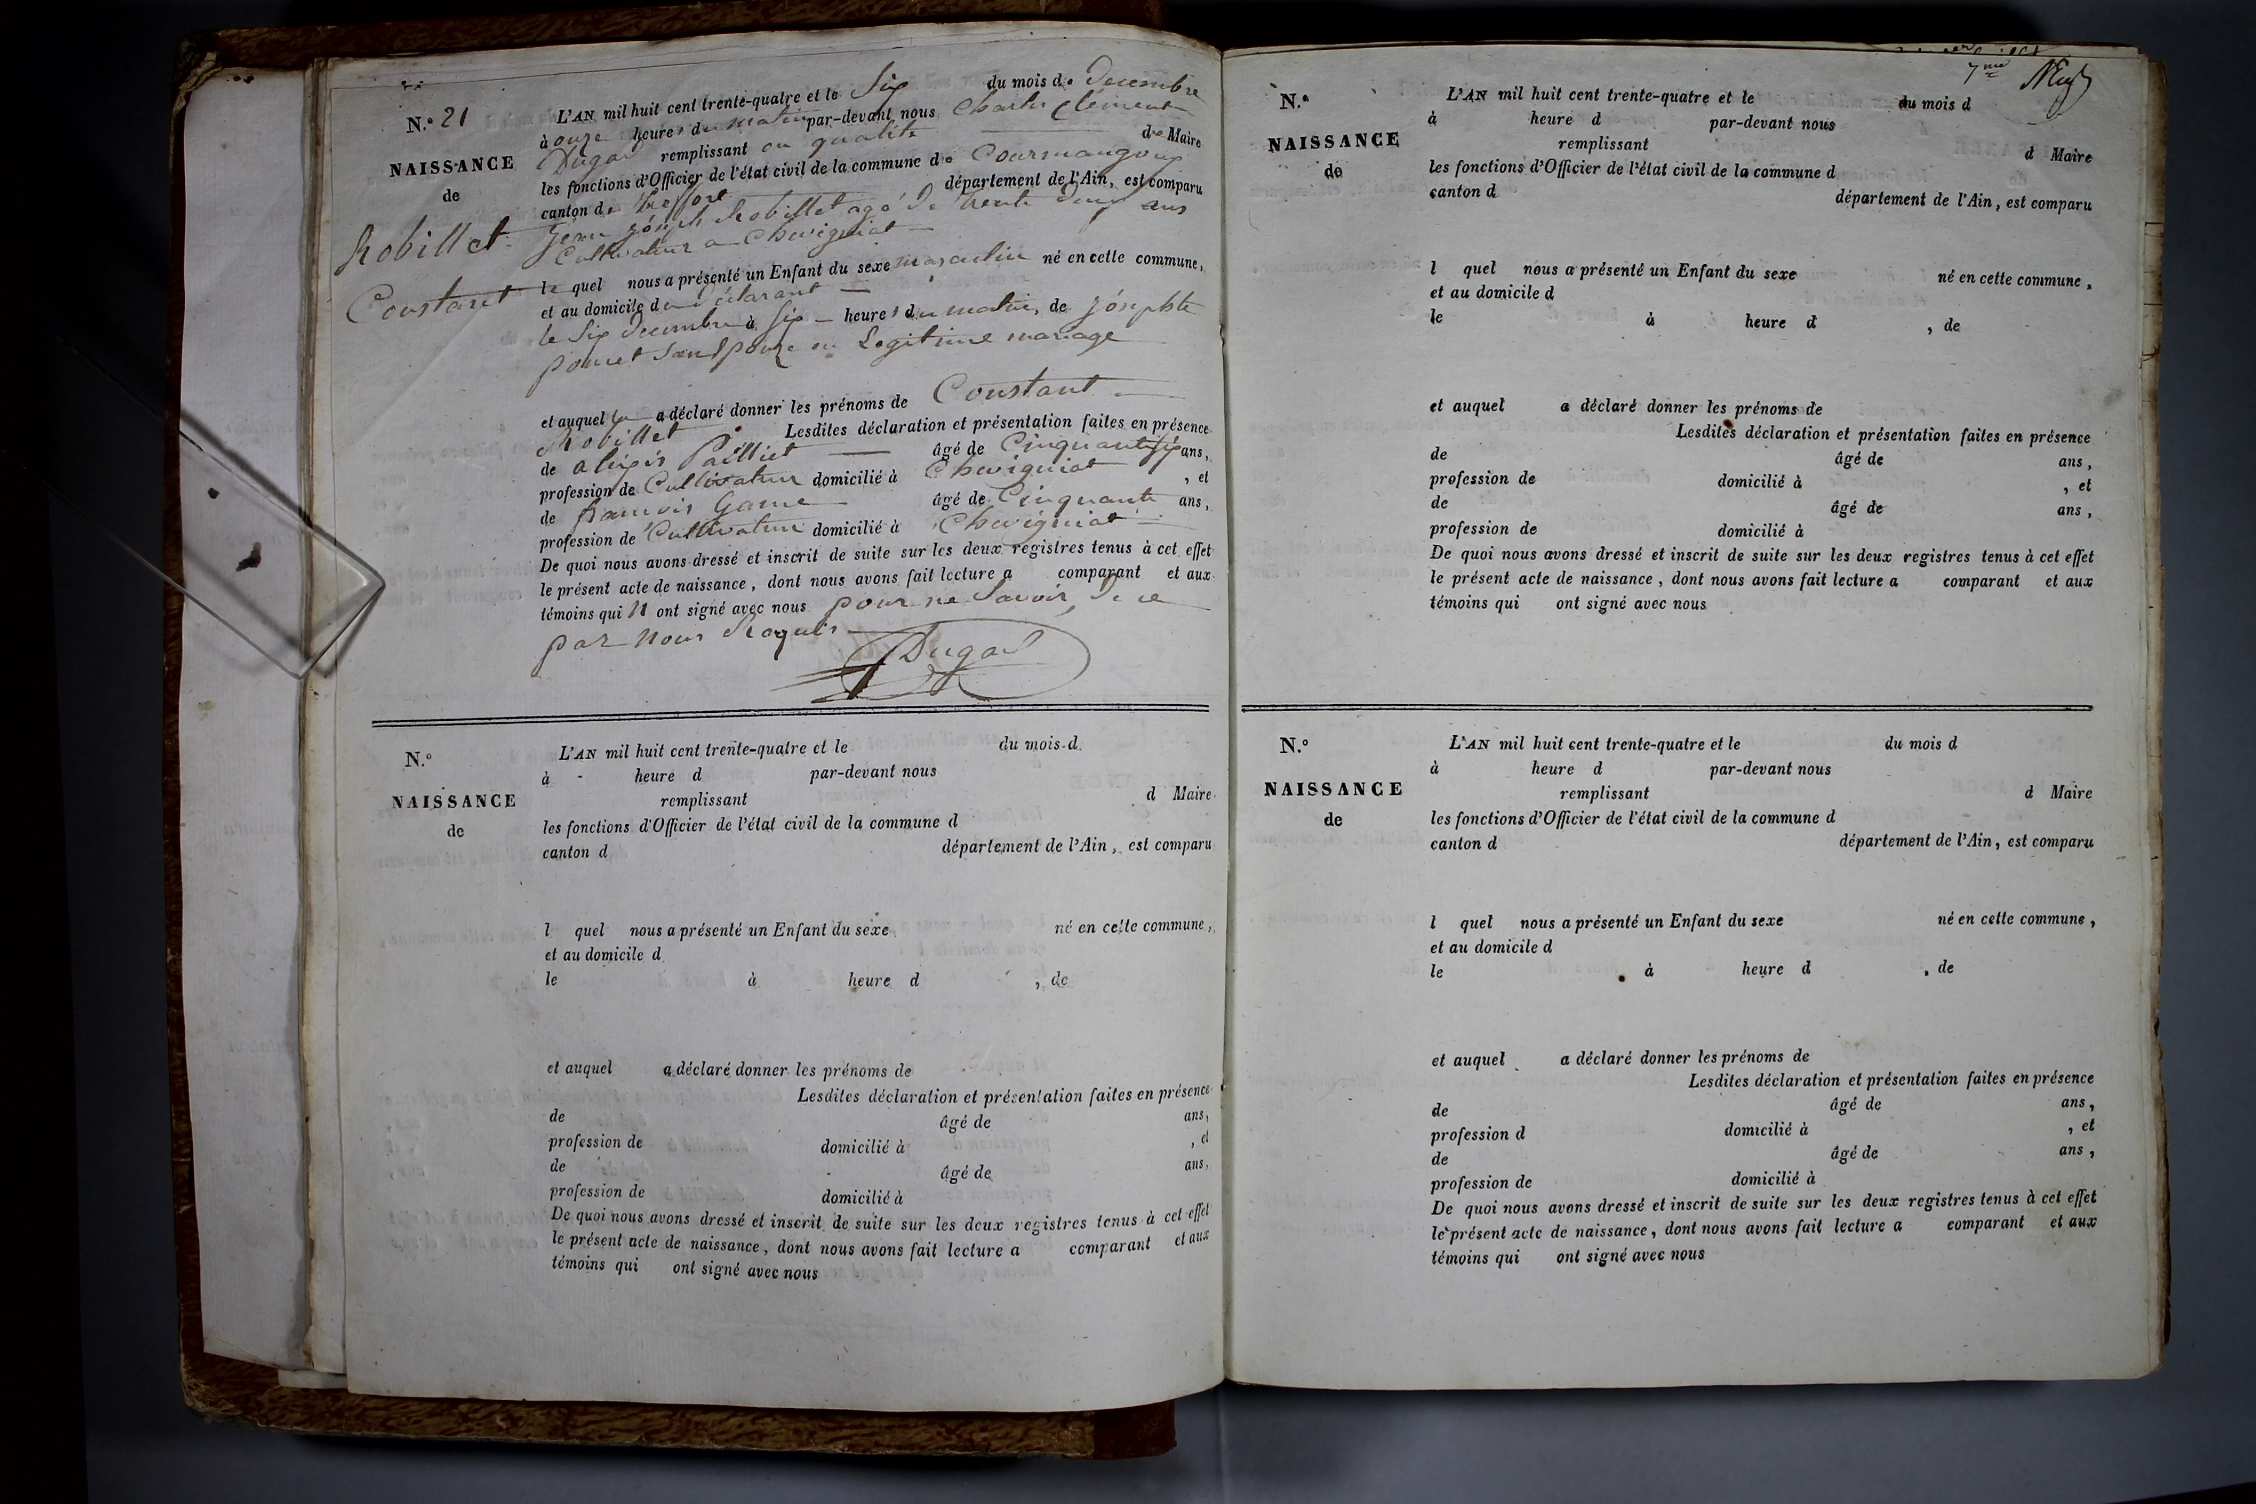 N.° 21
NAISSANCE
de
Robillet
Constant
L'AN mil huit cent trente-quatre et le Six du mois de Decembre
à onze heures du matin par-devant nous Charles Clément
Dugad remplissant en qualité de Maire
les fonctions d'Officier de l'état civil de la commune de Courmangoux
canton de treffort département de l'Ain, est comparu
Jean Joseph Robillet agé de trente deux ans
Cultivateur a Chevigniat
le quel nous a présenté un Enfant du sexe masculin né en cette commune,
et au domicile du déclarant
le Six Decembre à Six heures du matin, de Joséphte
pouet Son Epouze en Legitime mariage
et auquel a déclaré donner les prénoms de Constant
Robillet Lesdites déclaration et présentation faites en présence
de alexis Pailliet âgé de Cinquante six ans,
profession de Cultivateur domicilié à Chevigniat, et
de francois Game âgé de Cinquante ans,
profession de Cultivateur domicilié à Chevigniat
De quoi nous avons dressé et inscrit de suite sur les deux registres tenus à cet effet
le présent acte de naissance, dont nous avons fait lecture a comparant et aux
témoins qui n ont signé avec nous pour ne Savoir, De ce
par nous Requis
Dugad
N.°
NAISSANCE
de
L'AN mil huit cent trente-quatre et le du mois d
à heure d par-devant nous
remplissant d Maire
les fonctions d'Officier de l'état civil de la commune d
canton d département de l'Ain, est comparu
l quel nous a présenté un Enfant du sexe né en cette commune,
et au domicile d
le à heure d , de
et auquel a déclaré donner les prénoms de
Lesdites déclaration et présentation faites en présence
de âgé de ans,
profession de domicilié à , et
de âgé de ans,
profession de domicilié à
De quoi nous avons dressé et inscrit de suite sur les deux registres tenus à cet effet
le présent acte de naissance, dont nous avons fait lecture a comparant et aux
témoins qui ont signé avec nous
7me
N.°
NAISSANCE
de
L'AN mil huit cent trente-quatre et le du mois d
à heure d par-devant nous
remplissant d Maire
les fonctions d'Officier de l'état civil de la commune d
canton d département de l'Ain, est comparu
l quel nous a présenté un Enfant du sexe né en cette commune,
et au domicile d
le à heure d , de
et auquel a déclaré donner les prénoms de
Lesdites déclaration et présentation faites en présence
de âgé de ans,
profession de domicilié à , et
de âgé de ans,
profession de domicilié à
De quoi nous avons dressé et inscrit de suite sur les deux registres tenus à cet effet
le présent acte de naissance, dont nous avons fait lecture a comparant et aux
témoins qui ont signé avec nous
N.°
NAISSANCE
de
L'AN mil huit cent trente-quatre et le du mois d
à heure d par-devant nous
remplissant d Maire
les fonctions d'Officier de l'état civil de la commune d
canton d département de l'Ain, est comparu
l quel nous a présenté un Enfant du sexe né en cette commune,
et au domicile d
le à heure d , de
et auquel a déclaré donner les prénoms de
Lesdites déclaration et présentation faites en présence
de âgé de ans,
profession d domicilié à , et
de âgé de ans,
profession de domicilié à
De quoi nous avons dressé et inscrit de suite sur les deux registres tenus à cet effet
le présent acte de naissance, dont nous avons fait lecture a comparant et aux
témoins qui ont signé avec nous